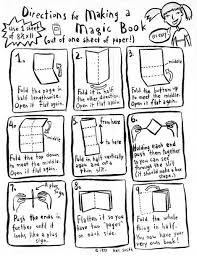 Directions for Making a
Magic Book
(out of one sheet of paper!)
Use 1 sheet
of 8½x11
1.
Fold the page in
half lengthwise.
Open it flat again.
2.
Fold it in half
the other direction.
Open it flat again.
3.
Fold the bottom up
to meet the middle.
Open it flat again.
4.
Fold the top down
to meet the middle.
Open it flat again.
5.
from here
to here
Fold in half vertically
again and
on a thin
6.
Holding each end
push them together
so you can see
through the slit
(it should make a box
shape.)
7.
a plus
sign
Push the ends in
further until it
looks like a plus
sign.
8.
Flatten it so you
have two "pages"
on each side
9.
Fold the whole
thing in half.
You now have your
very own book!